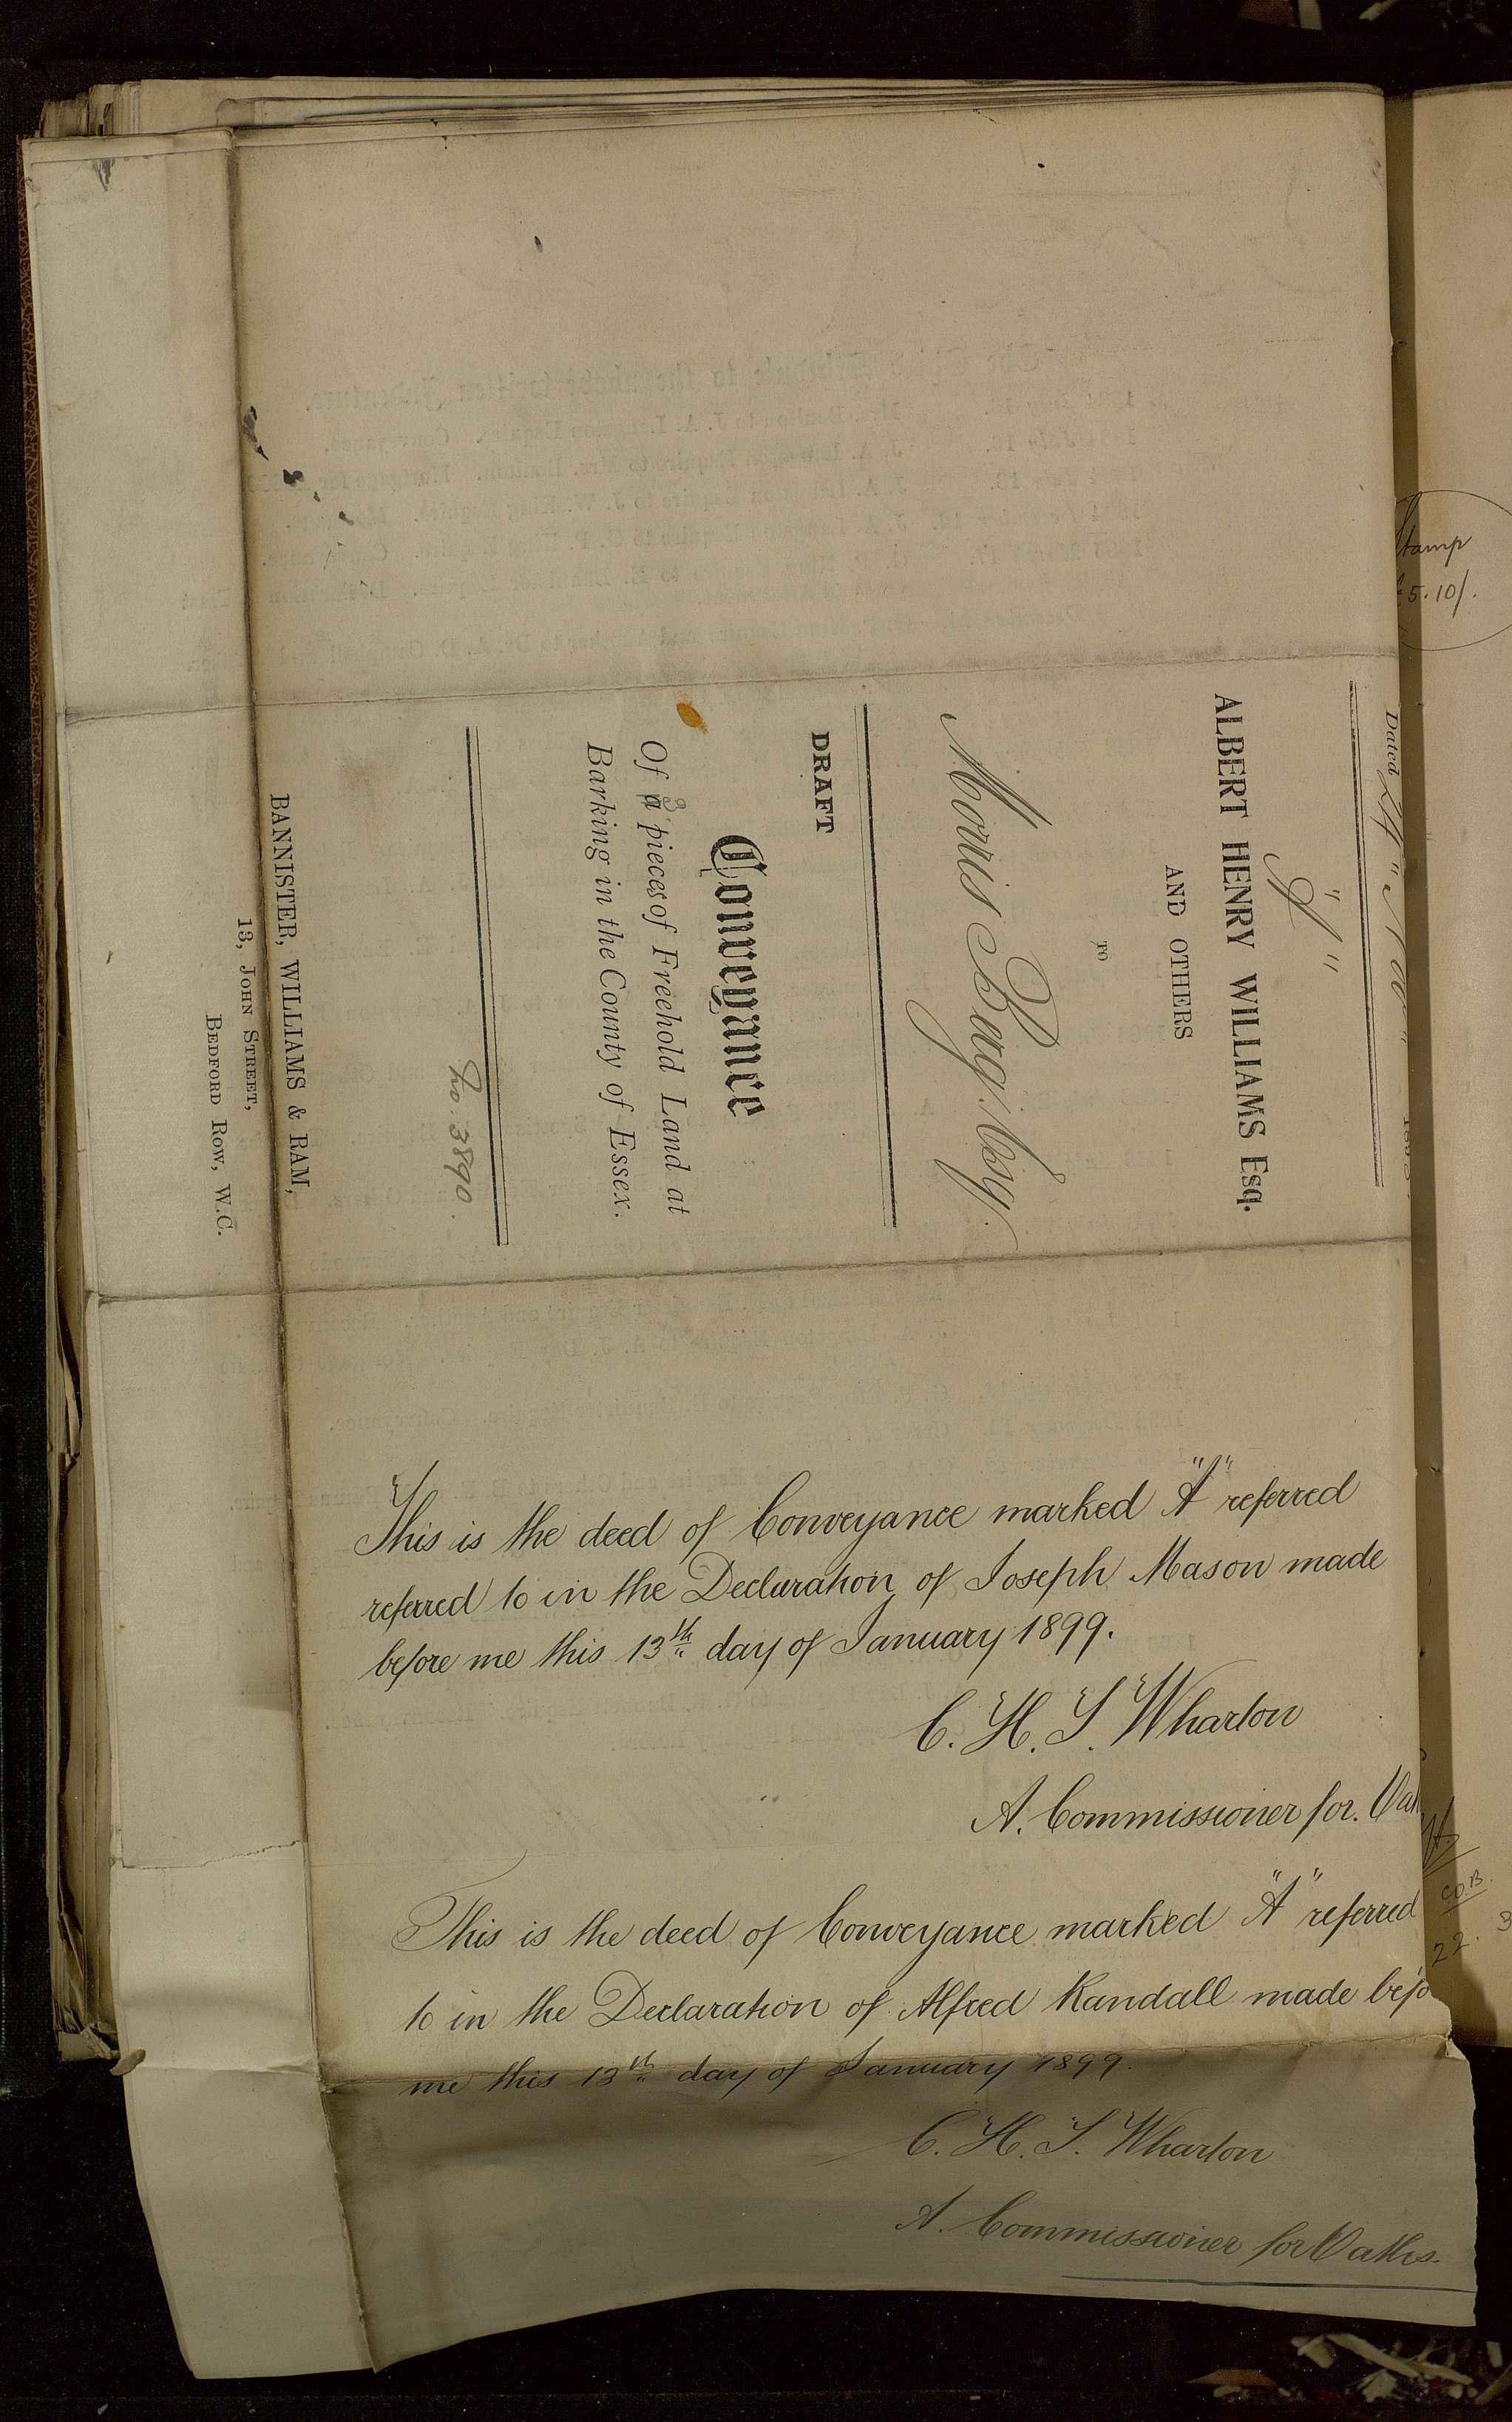 Dated 24" Nov"
"A"
ALBERT HENRY WILLIAMS Esq.
AND OTHERS
TO
Morris Esq.
DRAFT
Conveyance
Of 3 pieces of Freehold Land at
Barking in the County of Essex.
No. 3890.
BANNISTER, WILLIAMS & RAM,
13, JOHN STREET,
BEDFORD ROW, W.C.
This is the deed of Conveyance marked "A" referred
referred to in the Declaration of Joseph Mason made
before me this 13th day of January 1899.
C. H. S. Wharton
A. Commissioner for. Oat
This is the deed of Conveyance marked "A" referred
to in the Declaration of Alfred Randall made befo
me this 13th day of January 1899.
C. H. S. Wharton
A. Commissioner for Oaths.
Stamp
£5.10/.
22.